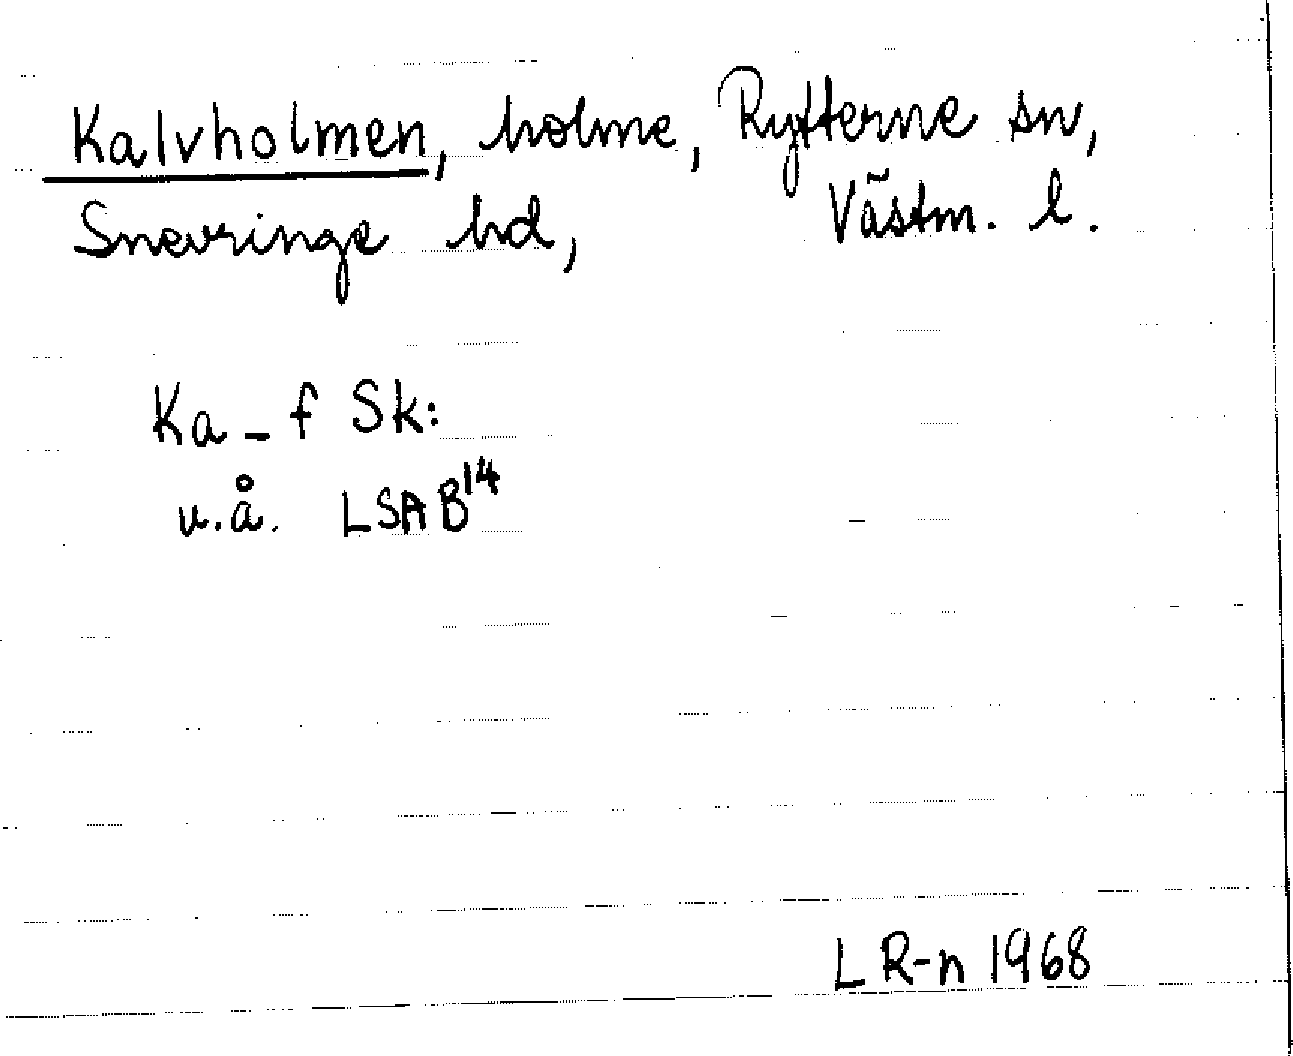 Kalvholmen, holme, Rytterne sn,
Snevringe hd, Västm. l.
Ka - f Sk:
u.å. LSA B14
L R-n 1968